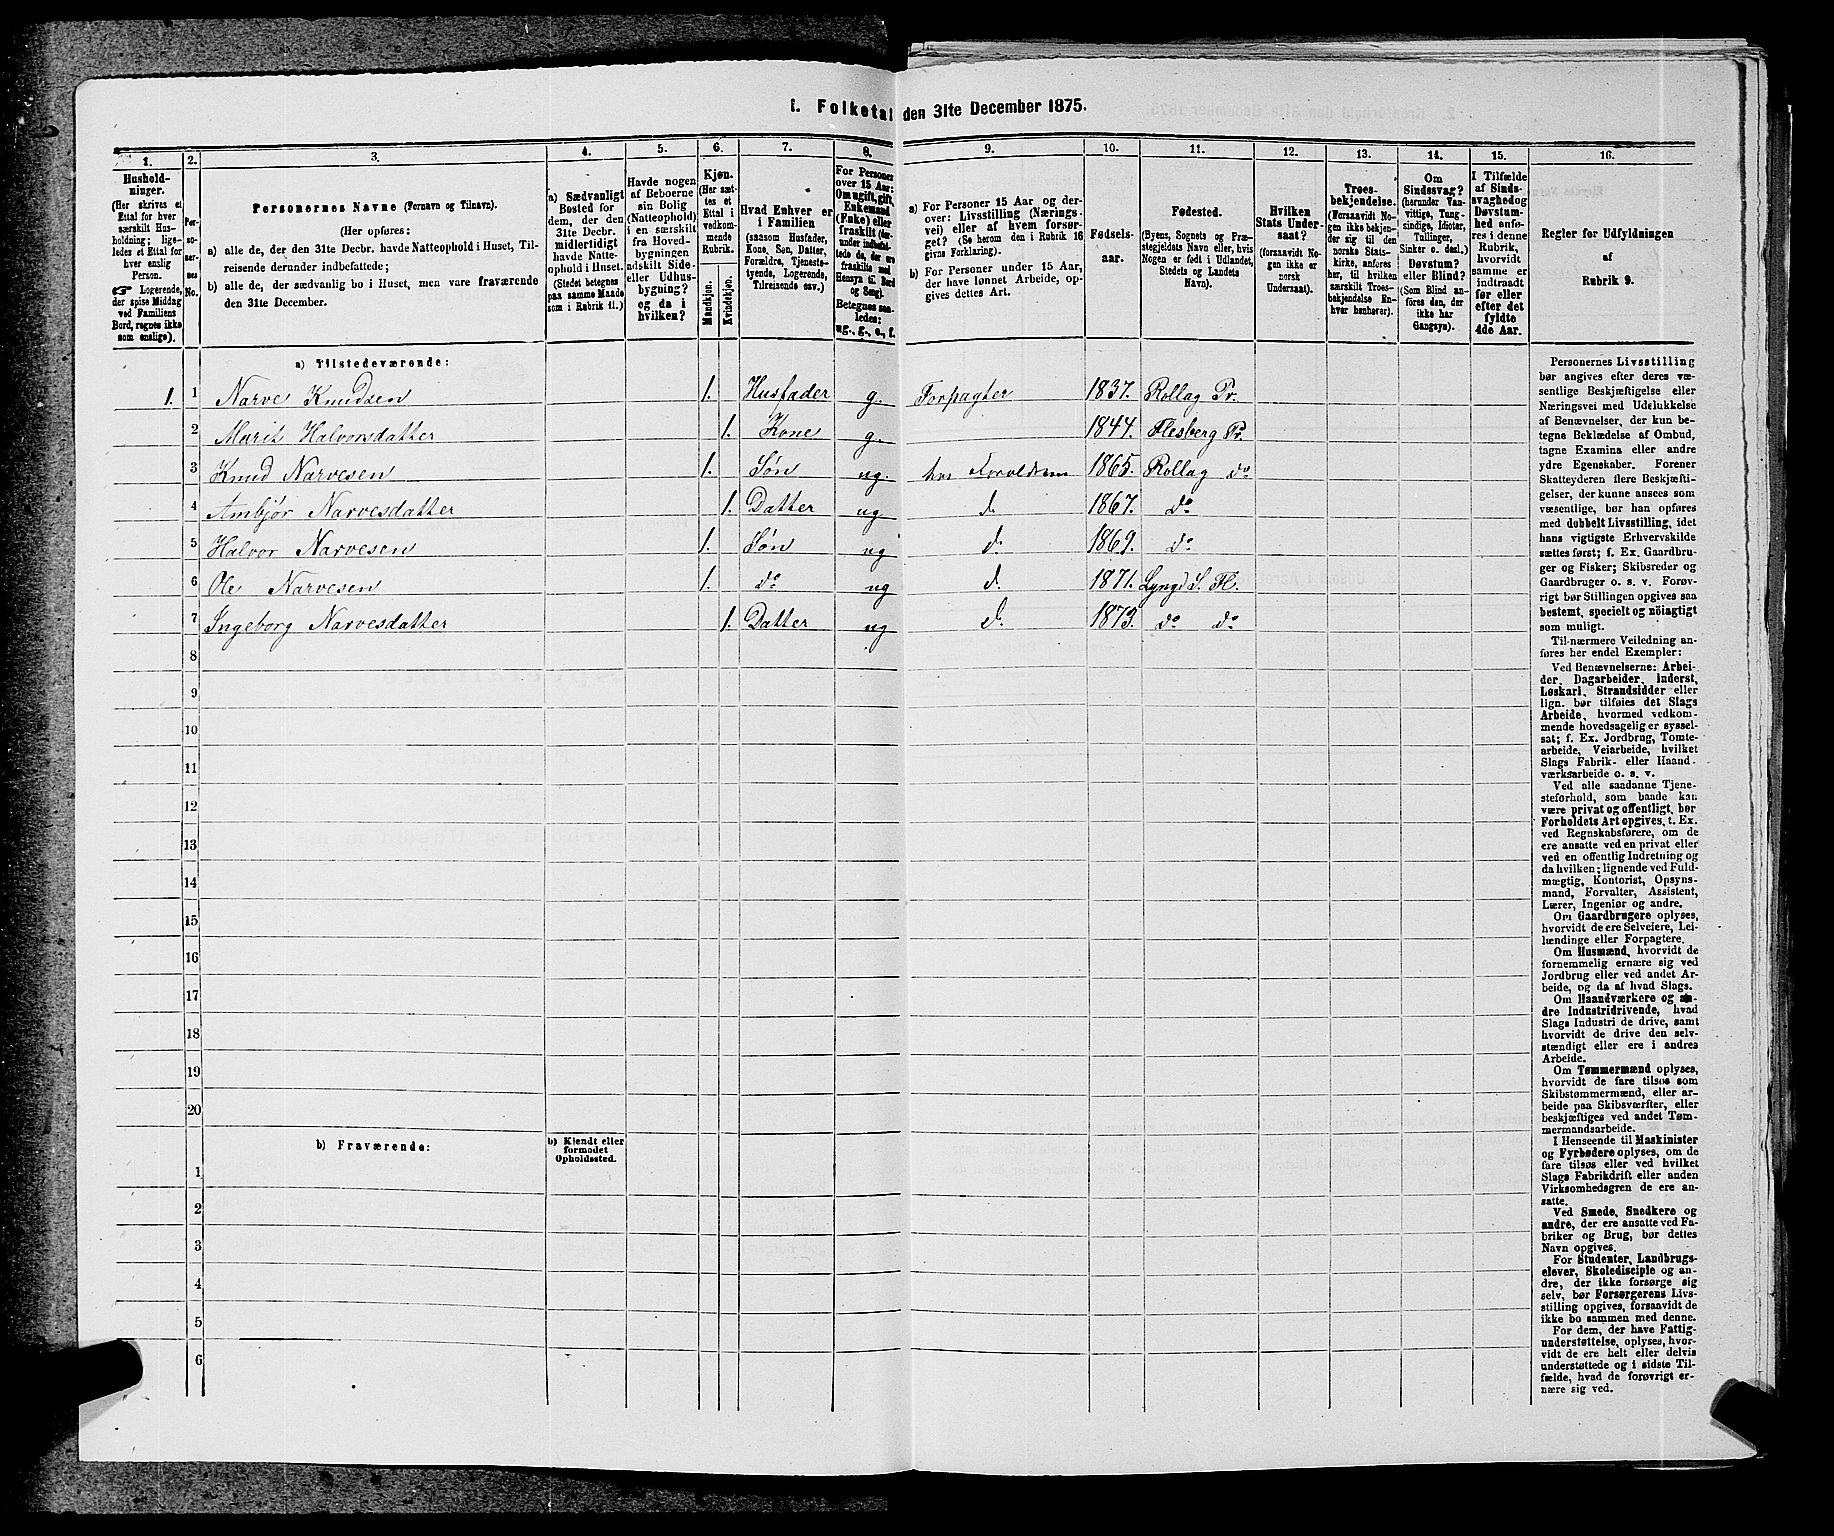 I. Folketal den 31te December 1875.
1. 2. 3. 4. 5. 6. 7. 8. 9. 10. 11. 12. 13. 14. 15. 16.
Husholdninger.
(Her skrives et
Ettal for hver
særskilt Husholdning; ligeledes
et Ettal for
hver enslig
Person.
☛ Logerende,
der spise Middag
ved Familiens
Bord, regnes ikke
som enslige).
Personernes No.
Personernes Navne (Fornavn og Tilnavn).
(Her opføres:
a) alle de, der den 31te Decbr. havde Natteophold i Huset, Tilreisende
derunder indbefattede;
b) alle de, der sædvanlig bo i Huset, men vare fraværende
den 31te December.
a) Sædvanligt
Bosted for
dem, der den
31te Decbr.
midlertidigt
havde Natteophold
i Huset.
(Stedet betegnes
paa samme Maade
som i Rubrik 11.)
Havde nogen
af Beboerne
sin Bolig
(Natteophold)
i en særskilt
fra Hovedbygningen
adskilt Side-
eller Udhusbygning?
og da i
hvilken?
Kjøn.
(Her sættes
et
Ettal i
vedkommende
Rubrik.
Mandkjøn.
Kvindekjøn.
Hvad Enhver er
i Familien
(saasom Husfader,
Kone, Søn, Datter,
Forældre, Tjenestetyende,
Logerende,
Tilreisende osv.)
For Personer
over 15 Aar:
Om ugift, gift,
Enkemand
(Enke) eller
fraskilt (derunder
indbefattede
de, der ere
fraskilte med
Hensyn til Bord
og Seng).
Betegnes saaledes:
ug., g., e., f.
a) For Personer 15 Aar og derover:
Livsstilling (Næringsvei)
eller af hvem forsørget?
(Se herom den i Rubrik 16
givne Forklaring).
b) For Personer under 15 Aar,
der have lønnet Arbeide, opgives
dettes Art.
Fødselsaar.
Fødested.
(Byens, Sognets og Præstegjeldets
Navn eller, hvis
Nogen er født i Udlandet,
Stedets og Landets
Navn).
Hvilken
Stats Undersaat?
(forsaavidt Nogen
ikke er
norsk
Undersaat).
Troesbekjendelse.
(Forsaavidt Nogen
ikke bekjender
sig til den
norske Statskirke,
anføres
her, til hvilken
særskilt Troesbekjendelse
Enhver
henhører).
Om
Sindssvag?
(herunder Vanvittige,
Tungsindige,
Idioter,
Tullinger,
Sinker o. desl.)
Døvstum?
eller Blind?
(Som Blind anføres
den, der
ikke har
Gangsyn).
I Tilfælde
af Sindssvaghed
og
Døvstumhed
anføres
i denne
Rubrik,
hvorvidt
samme er
indtraadt
før eller
efter det
fyldte
4de Aar.
Regler for Udfyldningen
af
Rubrik 9.
a) Tilstedeværende:
1. 1 Narve Knudsen 1. Husfader g. Forpagter 1837. Rollag Pr.
2 Marit Halvorsdatter 1. Kone g. 1844. Flesberg Pr.
3 Knud Narvesen 1. Søn ug. hos Forældrene 1865. Rollag do
4 Ambjør Narvesdatter 1. Datter ug d. 1867. do
5 Halvor Narvesen 1. Søn ug d. 1869. do
6 Ole Narvesen 1. do ug d. 1871. Lyngd S. Fl.
7 Ingeborg Narvesdatter 1. Datter ug d. 1873. do do
8
9
10
11
12
13
14
15
16
17
18
19
20
b) Fraværende:
b) Kjendt eller
formodet
Opholdssted.
1
2
3
4
5
6
Personernes Livsstilling
bør angives efter deres væsentlige
Beskjæftigelse eller
Næringsvei med Udelukkelse
af Benævnelser, der kun betegne
Beklædelse af Ombud,
tagne Examina eller andre
ydre Egenskaber. Forener
Skatteyderen flere Beskjæftigelser,
der kunne ansees som
væsentlige, bør han opføres
med dobbelt Livsstilling, idet
hans vigtigste Erhvervskilde
sættes først; f. Ex. Gaardbruger
og Fisker; Skibsreder og
Gaardbruger o. s. v. Forøvrigt
bør Stillingen opgives saa
bestemt, specielt og nøiagtigt
som muligt.
Til nærmere Veiledning anføres
her endel Exempler:
Ved Benævnelserne: Arbeider,
Dagarbeider, Inderst,
Løskarl, Strandsidder eller
lign. bør tilføies det Slags
Arbeide, hvormed vedkommende
hovedsagelig er sysselsat;
f. Ex. Jordbrug, Tomtearbeide,
Veiarbeide, hvilket
Slags Fabrik- eller Haandværksarbeide
o. s. v.
Ved alle saadanne Tjenesteforhold,
som baade kan
være privat og offentligt, bør
Forholdets Art opgives, t. Ex.
ved Regnskabsførere, om de
ere ansatte ved en privat eller
ved en offentlig Indretning og
da hvilken; lignende ved Fuldmægtig,
Kontorist, Opsynsmand,
Forvalter, Assistent,
Lærer, Ingeniør og andre.
Om Gaardbrugere oplyses,
hvorvidt de ere Selveiere, Leilændinge
eller Forpagtere.
Om Husmænd, hvorvidt de
fornemmelig ernære sig ved
Jordbrug eller ved andet Arbeide,
og da af hvad Slags.
Om Haandværkere og andre
Industridrivende, hvad
Slags Industri de drive, samt
hvorvidt de drive den selvstændigt
eller ere i andres
Arbeide.
Om Tømmermænd oplyses,
hvorvidt de fare tilsøs som
Skibstømmermænd, eller arbeide
paa Skibsværfter, eller
beskjæftiges ved andet Tømmermandsarbeide.
I Henseende til Maskinister
og Fyrbødere oplyses, om de
fare tilsøs eller ved hvilket
Slags Fabrikdrift eller anden
Virksomhedsgren de ere ansatte.
Ved Smede, Snedkere og
andre, der ere ansatte ved Fabriker
og Brug, bør dettes
Navn opgives.
For Studenter, Landbrugselever,
Skoledisciple og andre,
der ikke forsørge sig
selv, bør Forsørgerens Livsstilling
opgives, forsaavidt de
ikke bo sammen med denne.
For dem, der have Fattigunderstøttelse,
oplyses, hvorvidt
de ere helt eller delvis
understøttede og i sidste Tilfælde,
hvad de forøvrigt ernære
sig ved.